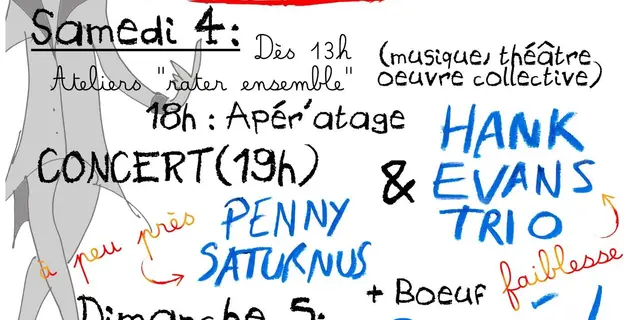 Samedi 4:
Dès 13h
Ateliers "rater ensemble"
(musique, théâtre
oeuvre collective)
18h : Apér'atage
CONCERT (19h)
à peu près
PENNY
SATURNUS
& HANK
EVANS
TRIO
faiblesse
+ Boeuf
Dimanche 5: